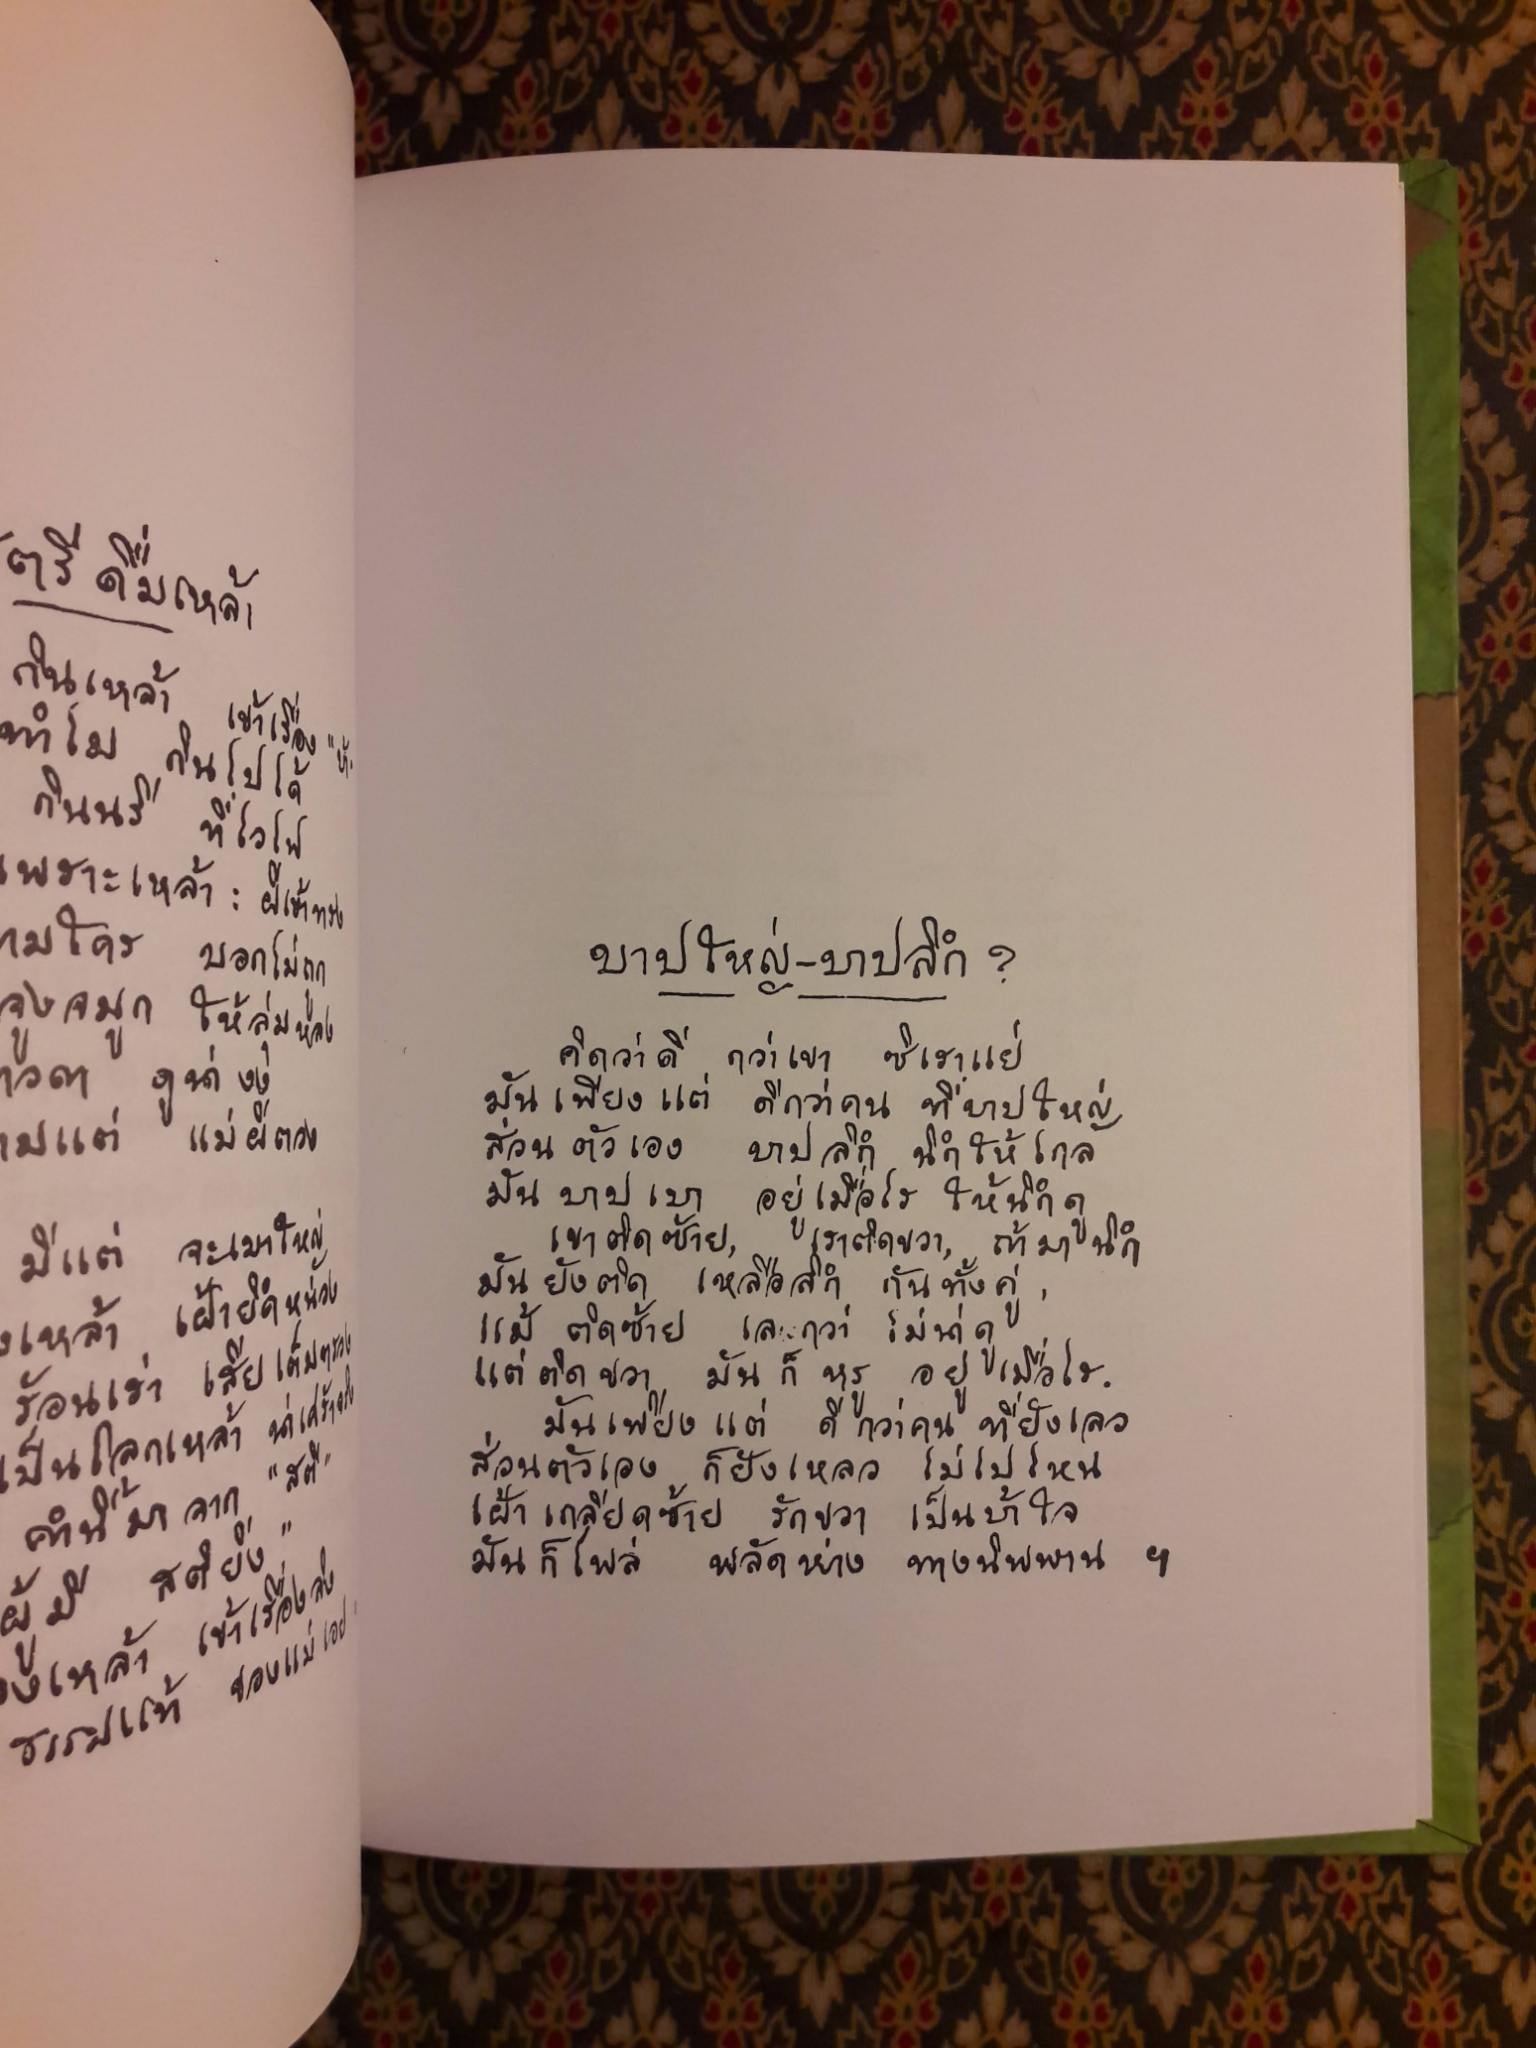 ตรีดื่มเหล้า
กินเหล้า เข้าเรื่อง
ทำไม กินไปได้
กินนรี ที่ไวไฟ
เพราะเหล้า : ผีเข้าทรง
ามใคร บอกไม่ถูก
จูงจมูก ให้ลุ่มหลง
าวดา ดูน่างง
ามแต่ แม่ผีตวง
มีแต่ จะเมาใหญ่
งเหล้า เฝ้ายึดหน่วง
ร้อนเร่า เสียเต็มทรวง
เป็นโลกเหล้า น่าเศร้าจริง
คำนี้มาจาก "สตี"
ผู้มี สติยิ่ง"
องเหล้า เข้าเรื่องลิง
ธรรมแท้ ของแม่เอย
บาปใหญ่-บาปลึก ?
คิดว่าดี กว่าเขา ซิเราแย่
มันเพียงแต่ ดีกว่าคน ที่บาปใหญ่
ส่วนตัวเอง บาปลึก นึกให้ไกล
มันบาปเบา อยู่เมื่อไร ให้นึกดู
เขาติดซ้าย, เราติดขวา, ถ้ามานึก
มันยังติด เหลือลึก กันทั้งคู่,
แม้ติดซ้าย เลวกว่า ไม่น่าดู
แต่ติดขวา มันก็หรู อยู่เมื่อไร.
มันเพียงแต่ ดีกว่าคน ที่ยังเลว
ส่วนตัวเอง ก็ยังเหลว ไม่ไปไหน
เฝ้าเกลียดซ้าย รักขวา เป็นบ้าใจ
มันก็ไพล่ พลัดห่าง ทางนิพพาน ฯ